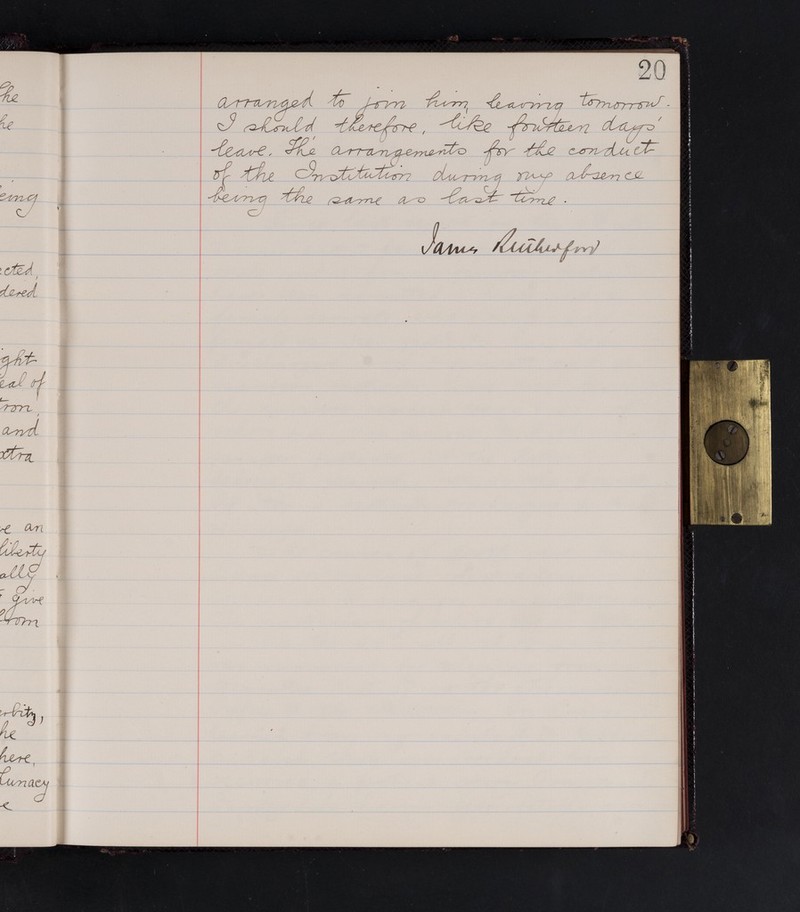 he
he
eing
ected,
dered
ight
eal of
tron,
and
xtra
ve an
liberty
ally
give
from
he
here,
Lunacy
20
arranged to join him, leaving tomorrow.
I should therefore, like fourteen days'
leave. The arrangements for the conduct
of the Institution during my absence
being the same as last time.
James Rutherford